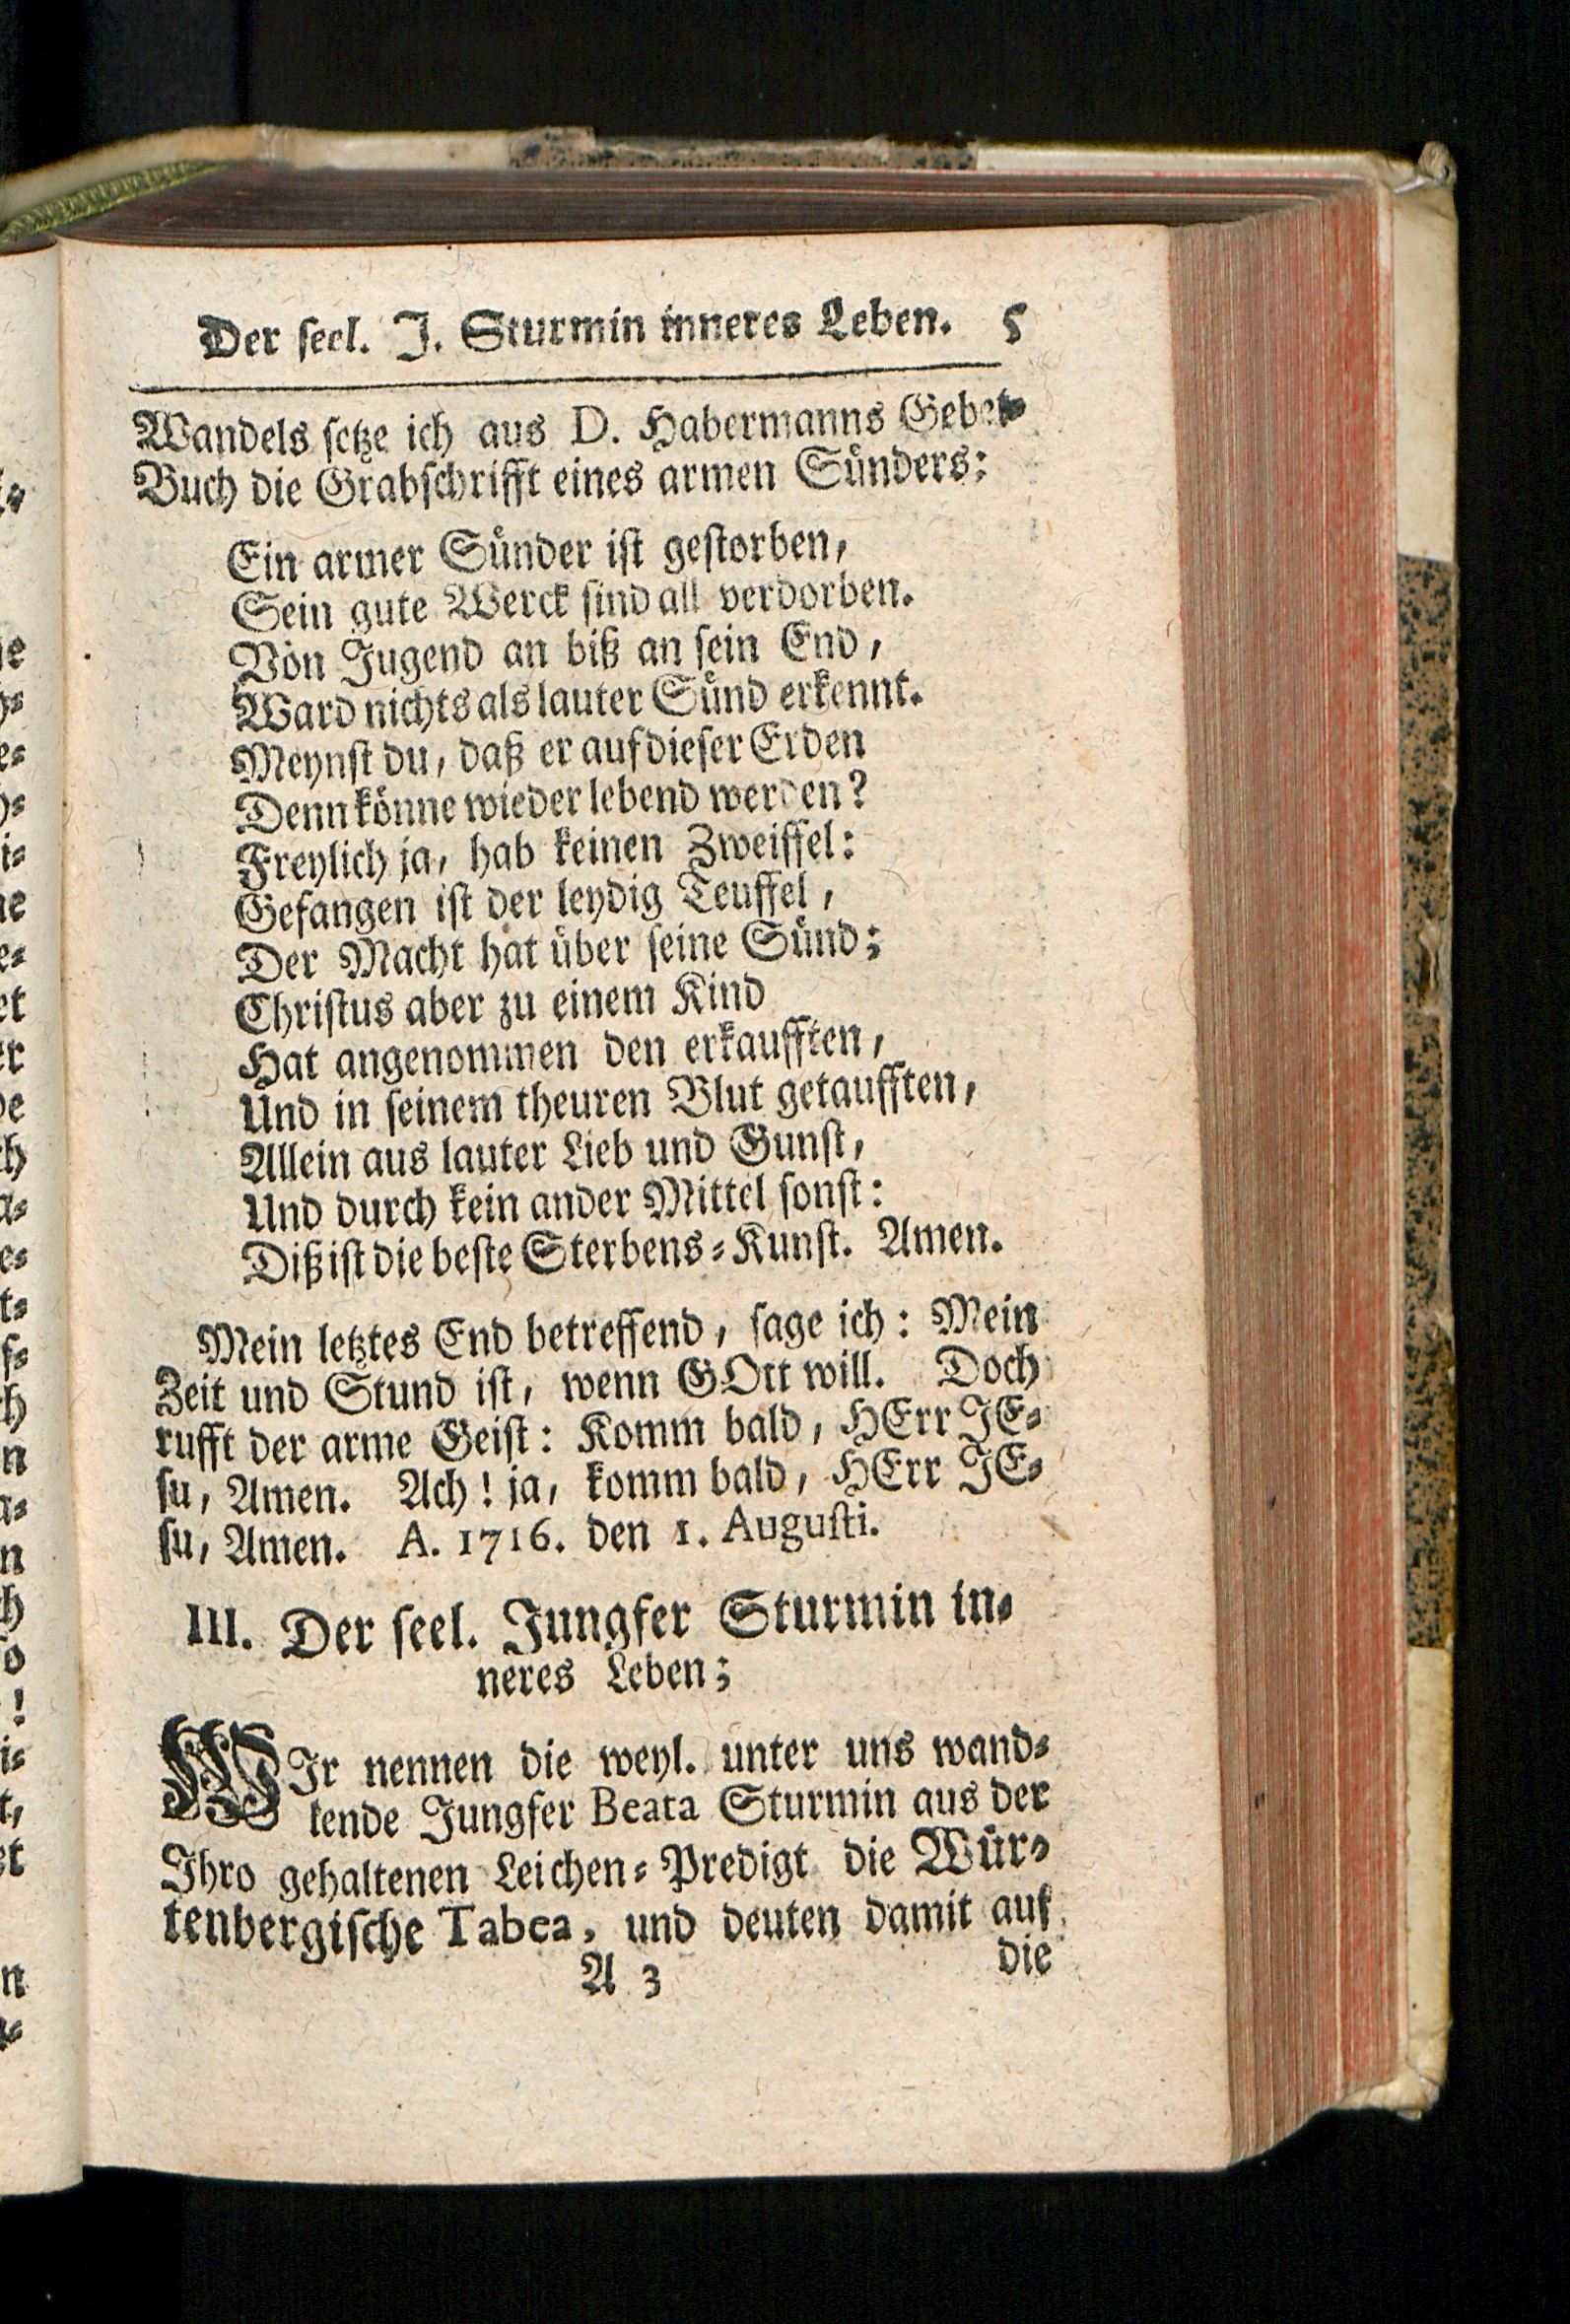 Der seel. J. Sturmin inneres Leben. 5
Wandels setze ich aus D. Habermanns Gebet-
Buch die Grabschrifft eines armen Sünders:
Ein armer Sünder ist gestorben,
Sein gute Werck sind all verdorben.
Von Jugend an biß an sein End,
Ward nichts als lauter Sünd erkennt.
Meynst du, daß er auf dieser Erden
Denn könne wieder lebend werden?
Freylich ja, hab keinen Zweiffel:
Gefangen ist der leydig Teuffel,
Der Macht hat über seine Sünd;
Christus aber zu einem Kind
Hat angenommen den erkaufften,
Und in seinem theuren Blut getaufften,
Allein aus lauter Lieb und Gunst,
Und durch kein ander Mittel sonst:
Diß ist die beste Sterbens-Kunst. Amen.
Mein letztes End betreffend, sage ich: Mein
Zeit und Stund ist, wenn GOtt will. Doch
rufft der arme Geist: Komm bald, HErr JE-
su, Amen. Ach! ja, komm bald, HErr JE-
su, Amen. A. 1716. den 1. Augusti.
III. Der seel. Jungfer Sturmin in-
neres Leben;
WJr nennen die weyl. unter uns wand-
lende Jungfer Beata Sturmin aus der
Jhro gehaltenen Leichen-Predigt die Wür-
tenbergische Tabea, und deuten damit auf
A 3 die